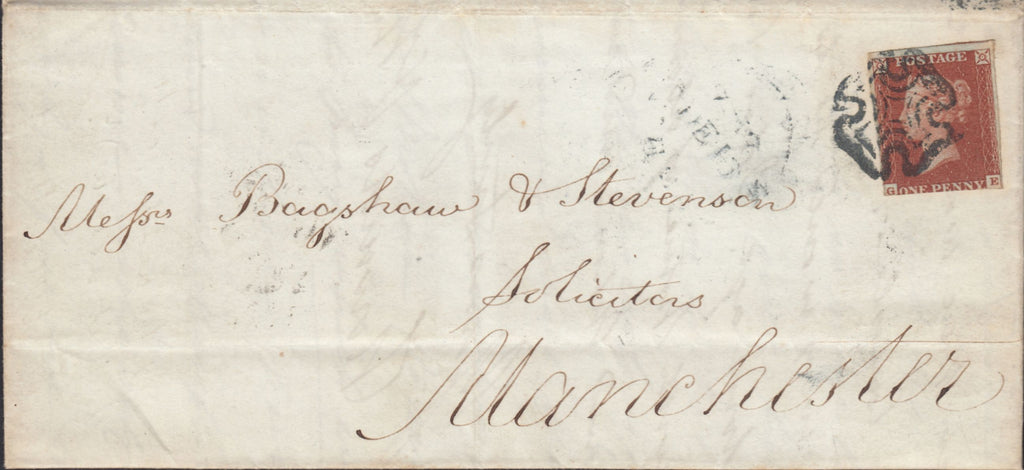 POSTAGE
G ONE PENNY E
Messrs Bagshaw & Stevenson
Solicitors
Manchester